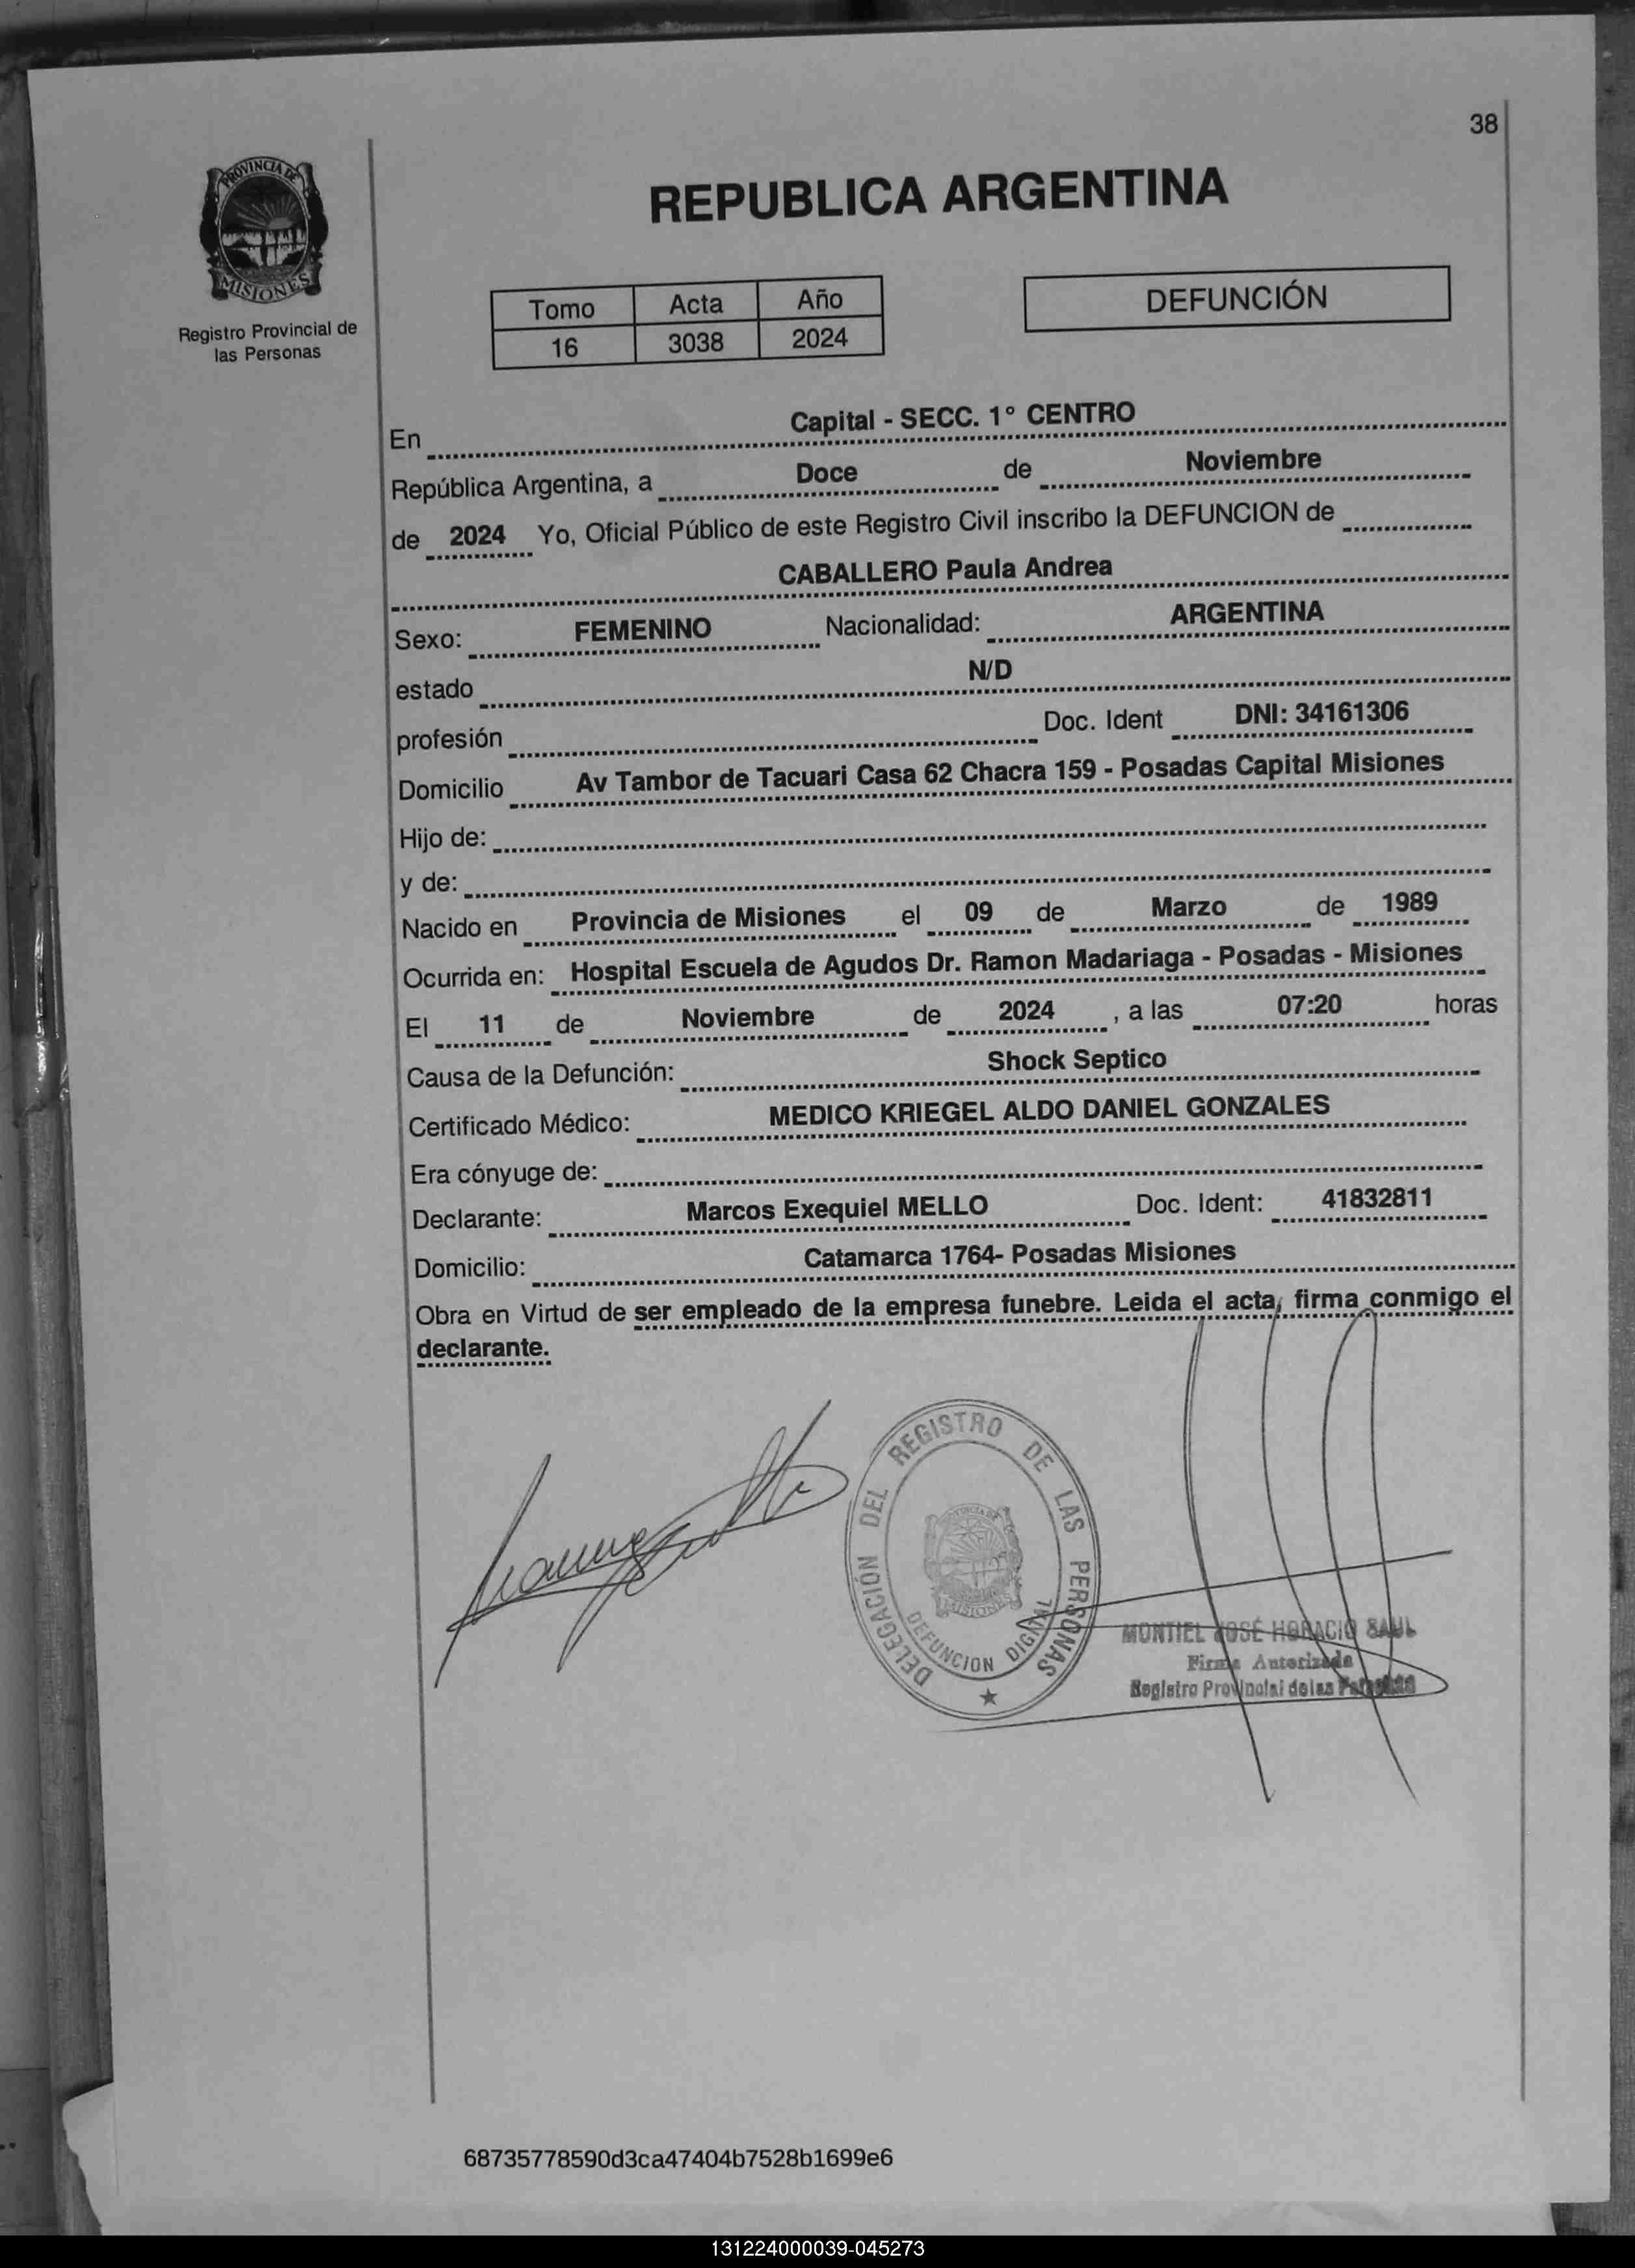 38
PROVINCIA DE
MISIONES
Registro Provincial de
las Personas
REPUBLICA ARGENTINA
Tomo Acta Año
16 3038 2024
DEFUNCIÓN
En Capital - SECC. 1° CENTRO
República Argentina, a Doce de Noviembre
de 2024 Yo, Oficial Público de este Registro Civil inscribo la DEFUNCION de
CABALLERO Paula Andrea
Sexo: FEMENINO Nacionalidad: ARGENTINA
estado N/D
profesión Doc. Ident DNI: 34161306
Domicilio Av Tambor de Tacuari Casa 62 Chacra 159 - Posadas Capital Misiones
Hijo de:
y de:
Nacido en Provincia de Misiones el 09 de Marzo de 1989
Ocurrida en: Hospital Escuela de Agudos Dr. Ramon Madariaga - Posadas - Misiones
El 11 de Noviembre de 2024 , a las 07:20 horas
Causa de la Defunción: Shock Septico
Certificado Médico: MEDICO KRIEGEL ALDO DANIEL GONZALES
Era cónyuge de:
Declarante: Marcos Exequiel MELLO Doc. Ident: 41832811
Domicilio: Catamarca 1764- Posadas Misiones
Obra en Virtud de ser empleado de la empresa funebre. Leida el acta, firma conmigo el
declarante.
DELEGACIÓN DEL REGISTRO DE LAS PERSONAS
MISIONES
DEFUNCION DIGITAL
MONTIEL JOSÉ HORACIO SAUL
Firma Autorizada
Registro Provincial de las Personas
68735778590d3ca47404b7528b1699e6
131224000039-045273